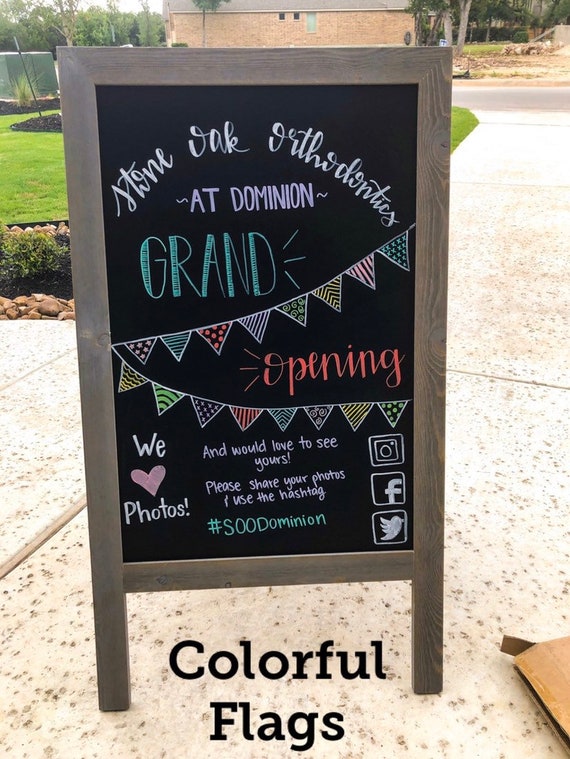 Stone Oak Orthodontics
~AT DOMINION~
GRAND
Opening
We
Photos!
And would love to see
yours!
Please share your photos
& use the hashtag
#SOODominion
f
Colorful
Flags